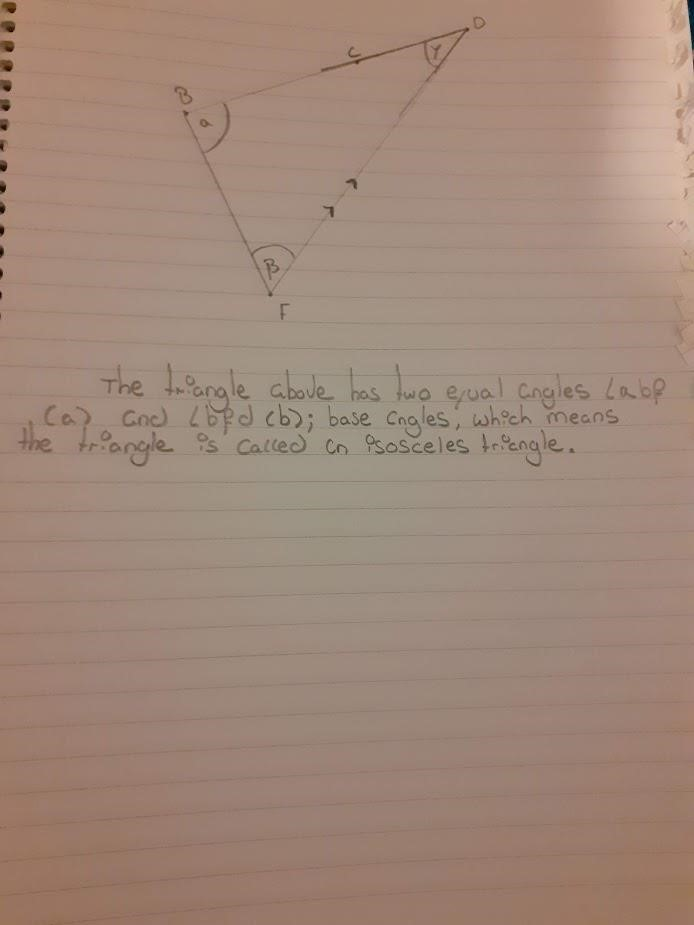 D
C
γ
B
a
β
F
The triangle above has two equal angles ∠abf
(a) and ∠bfd (b); base angles, which means
the triangle is called an isosceles triangle.